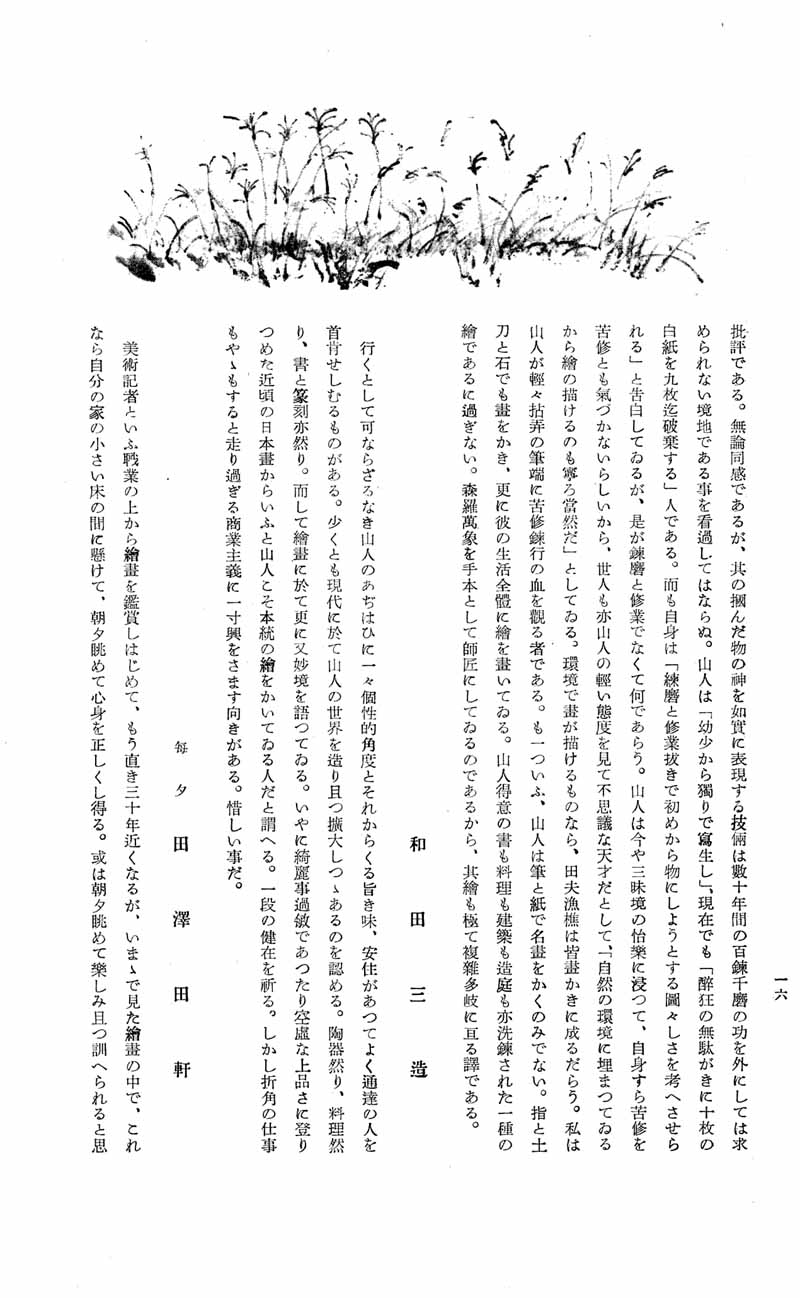 批評である。無論同感であるが、其の摑んだ物の神を如實に表現する技倆は數十年間の百鍊千磨の功を外にしては求
められない境地である事を看過してはならぬ。山人は「幼少から獨りで寫生し」、現在でも「醉狂の無駄がきに十枚の
白紙を九枚迄破棄する」人である。而も自身は「練磨と修業拔きで初めから物にしようとする圖々しさを考へさせら
れる」と告白してゐるが、是が鍊磨と修業でなくて何であらう。山人は今や三昧境の怡樂に浸つて、自身すら苦修を
苦修とも氣づかないらしいから、世人も亦山人の輕い態度を見て不思議な天才だとして、「自然の環境に埋まつてゐる
から繪の描けるのも寧ろ當然だ」としてゐる。環境で畫が描けるものなら、田夫漁樵は皆畫かきに成るだらう。私は
山人が輕々拈弄の筆端に苦修鍊行の血を觀る者である。も一ついふ、山人は筆と紙で名畫をかくのみでない。指と土
刀と石でも畫をかき、更に彼の生活全體に繪を畫いてゐる。山人得意の書も料理も建築も造庭も亦洗鍊された一種の
繪であるに過ぎない。森羅萬象を手本として師匠にしてゐるのであるから、其繪も極て複雜多岐に亘る譯である。
和田三造
行くとして可ならざるなき山人のあぢはひに一々個性的角度とそれからくる旨き味、安住があつてよく通達の人を
首肯せしむるものがある。少くとも現代に於て山人の世界を造り且つ擴大しつゝあるのを認める。陶器然り、料理然
り、書と篆刻亦然り。而して繪畫に於て更に又妙境を語つてゐる。いやに綺麗事過敏であつたり空虛な上品さに登り
つめた近頃の日本畫からいふと山人こそ本統の繪をかいてゐる人だと謂へる。一段の健在を祈る。しかし折角の仕事
もやゝもすると走り過ぎる商業主義に一寸興をさます向きがある。惜しい事だ。
每夕 田澤田軒
美術記者といふ職業の上から繪畫を鑑賞しはじめて、もう直き三十年近くなるが、いまゝで見た繪畫の中で、これ
なら自分の家の小さい床の間に懸けて、朝夕眺めて心身を正しくし得る。或は朝夕眺めて樂しみ且つ訓へられると思
一六